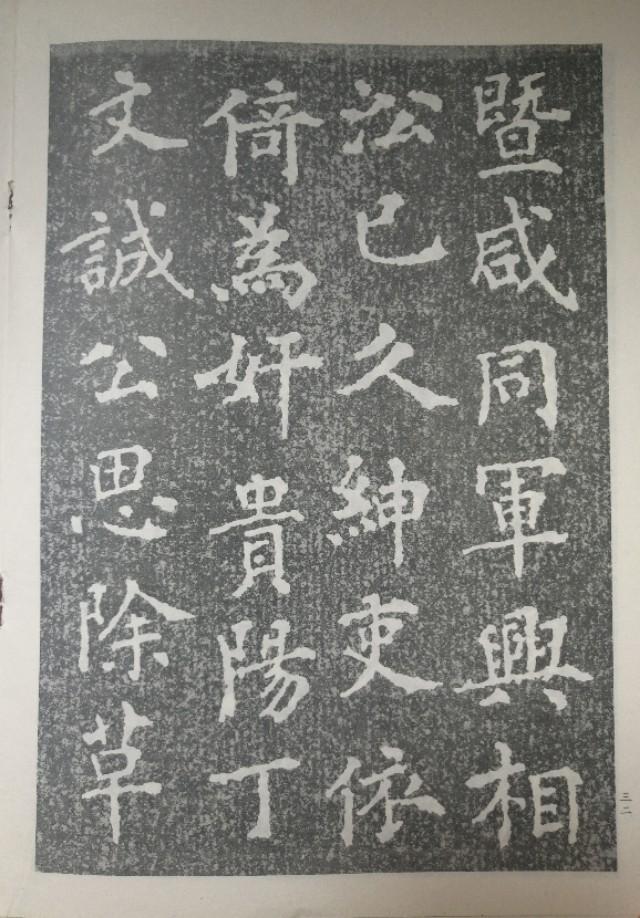 暨咸同軍興相
沿已久紳吏依
倚為奸貴陽丁
文誠公思除草
三二